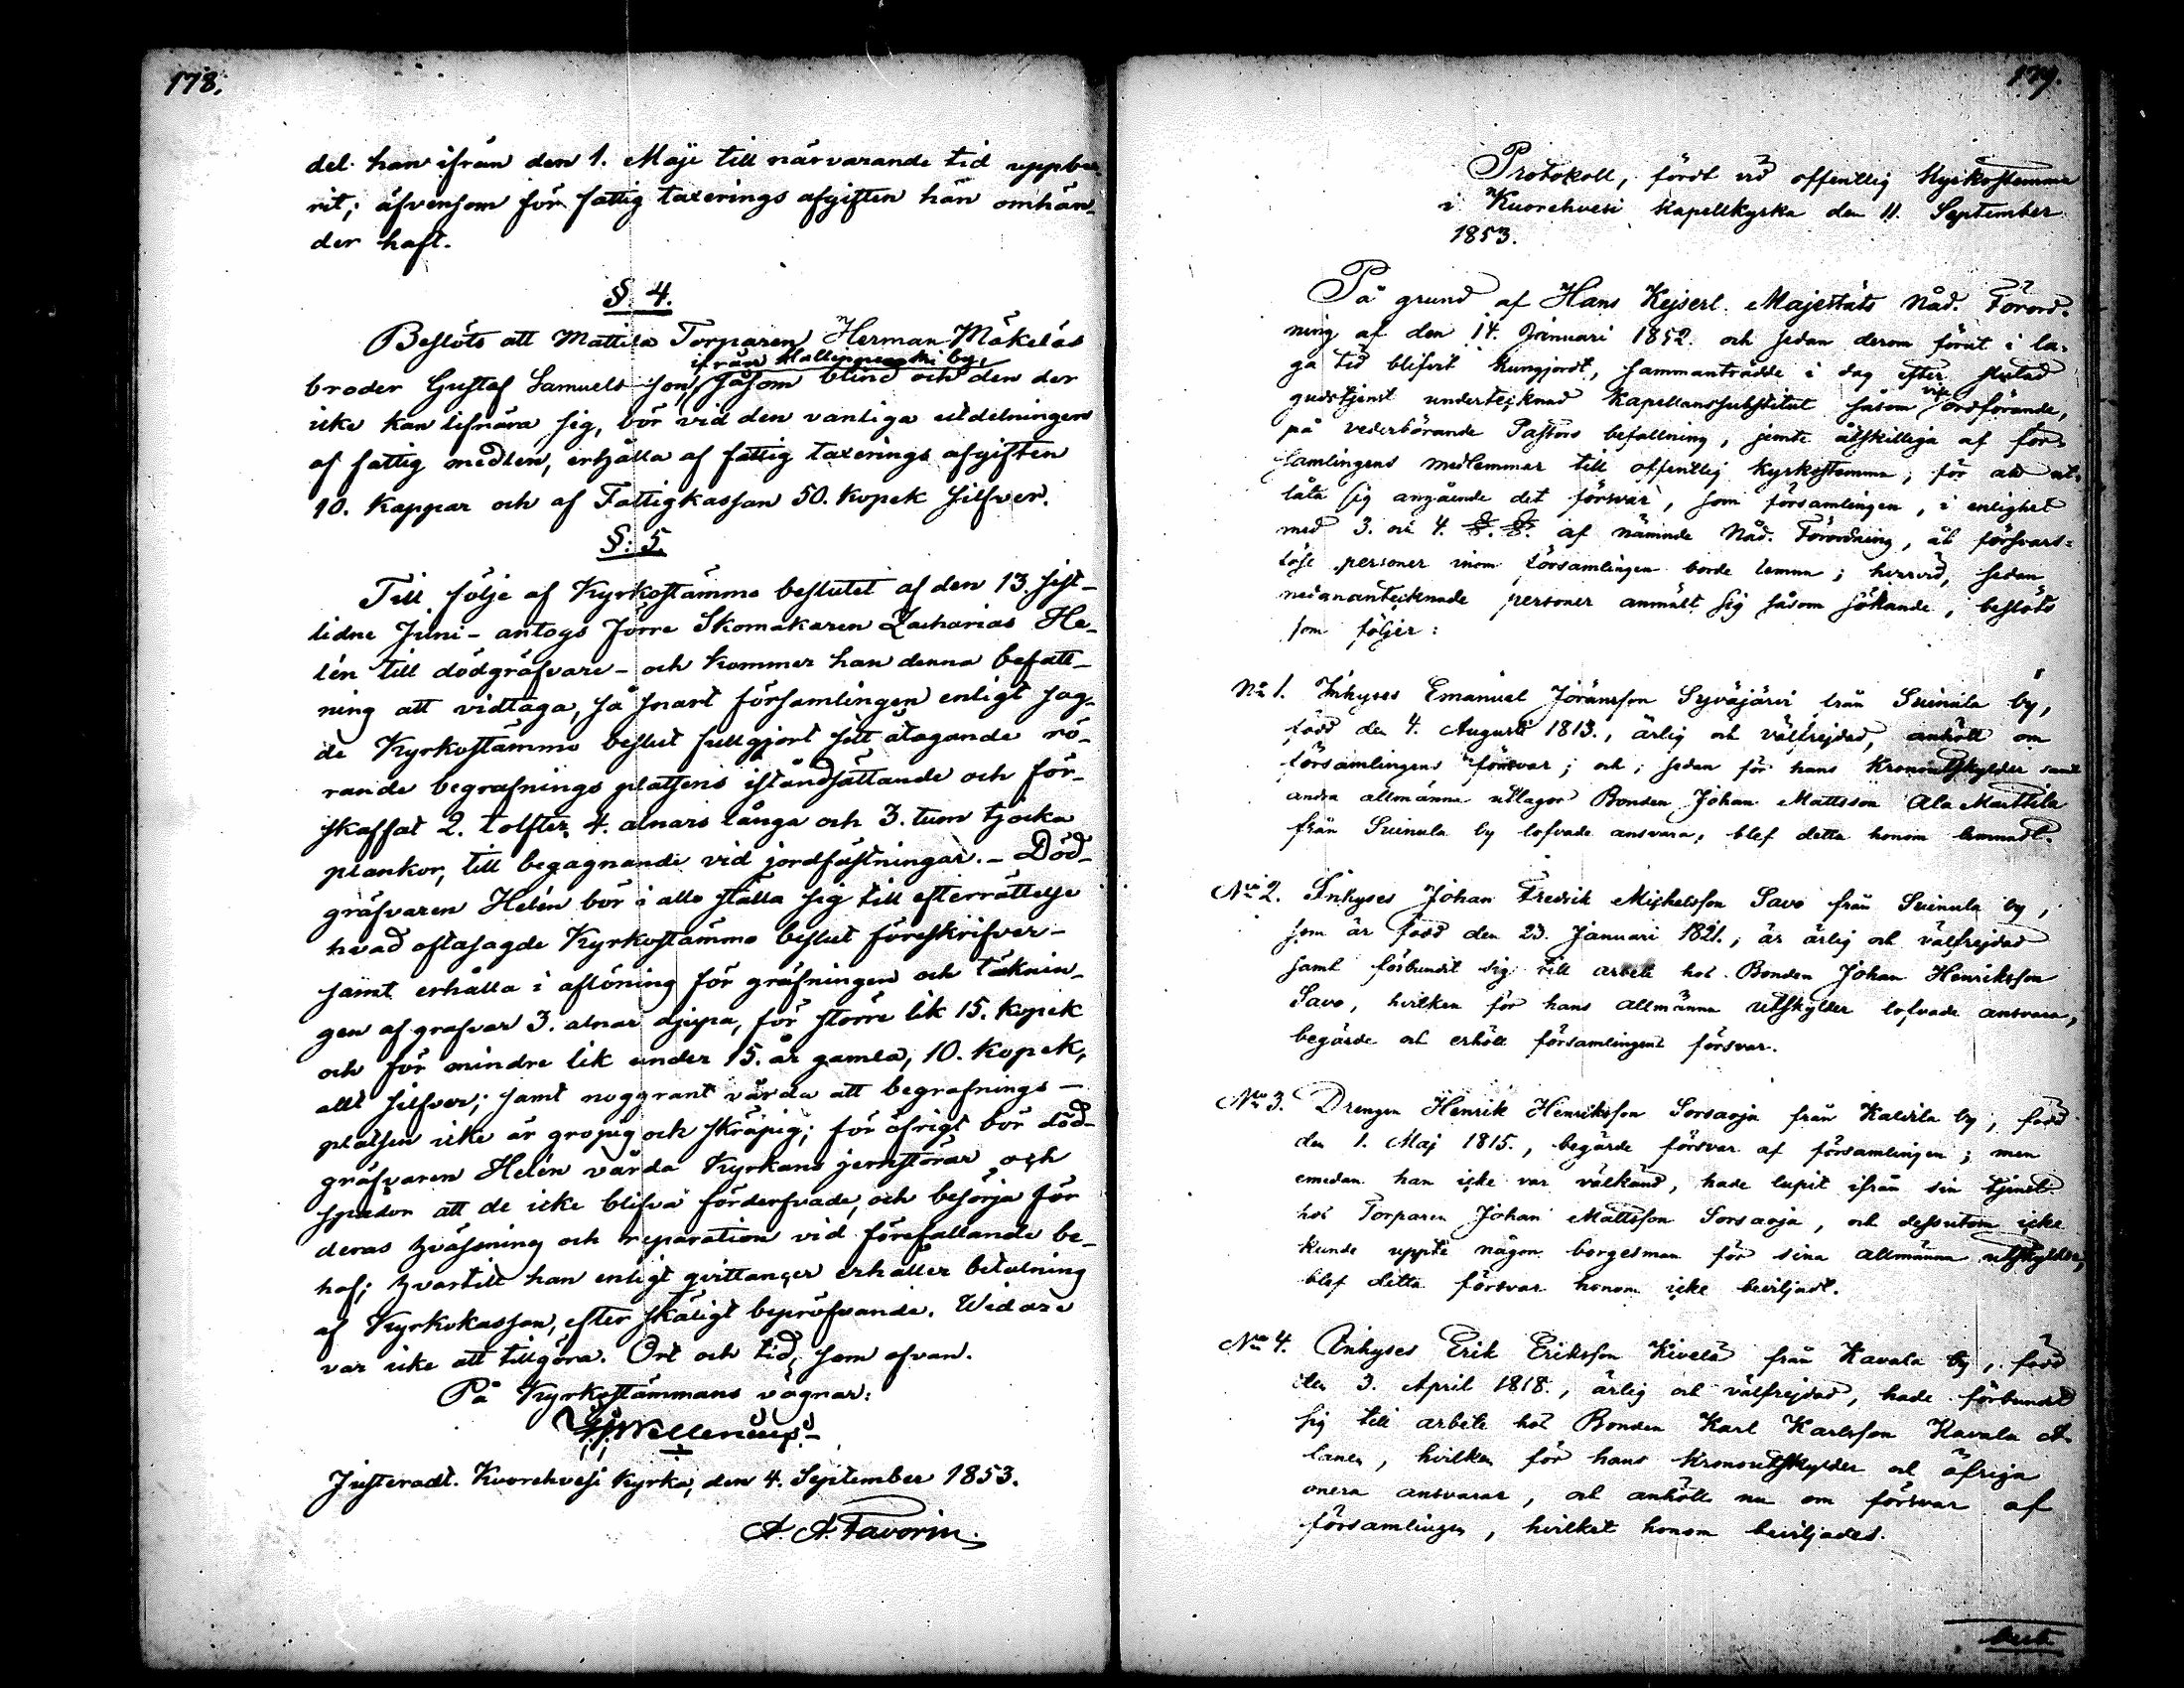 178.
del han ifrån den 1. Maji till närvarande tid uppbu-
rit; äfvensom för fattig taxerings afgiften han omhän-
der haft.
§. 4.
Beslöts att Mattila Torparen Herman Mäkeläs
ifrån by,
broder Gustaf Samuels-son, såsom blind och den der
icke kan lifnära sig, bör vid den vanliga utdelningen
af fattig medlen, erhålla af fattig taxerings afgiften
10. Kappar och af Fattigkassan 50. Kopek silfver.
§: 5.
Till följe af Kyrkostämmo beslutet af den 13. sist-
lidne Juni - antogs förre Skomakaren Zacharias He-
lén till dödgräfvare - och kommer han denna befatt-
ning att vidtaga, så snart församlingen enligt sag-
de Kyrkostämmo beslut fullgjort sitt åtagande rö-
rande begrafnings platsens iståndsättande och för-
skaffat 2. tolfter 4. alnars långa och 3. tum tjocka
plankor, till begagnande vid jordfästningar. - Död-
gräfvaren Helén bör i allo ställa sig till efterrättelse
hvad oftasagde Kyrkostämmo beslut föreskrifver -
samt erhålla i aflöning för gräfningen och täcknin-
gen af grafvar 3. alnar djupa, för större lik 15. Kopek
och för mindre lik under 15. år gamla, 10. Kopek,
allt silfver; samt noggrant vårda att begrafnings -
platsen icke är gropig och skräpig; för öfrigt bör död-
gräfvaren Helén vårda Kyrkans jernstörar och
spador att de icke blifva förderfvade, och besörja för
deras hvässning och reparation vid förefallande be-
hof; hvartill han enligt qvittancer erhåller betalning
af Kyrkokassan, efter skäligt bepröfvande. Widare
var icke att tillgöra. Ort och tid, som ofvan.
På Kyrkostämmans vägnar:
Wellenius
Justeradt. Kuorehvesi Kyrka, den 4. September 1853.
A. A. Favorin.
179.
Protokoll, fördt vid offentlig Kyrkostemma
i Kuorehvesi Kapellkyrka den 11. September
1853.
På grund af Hans Kejserl. Majestäts Nåd. Förord-
ning af den 14. Januari 1852. och sedan derom förut i la-
ga tid blifvit kungjordt, sammanträdde i dag efter slutad
gudstjenst undertecknad Kapellanssubstitut såsom ordförande,
på vederbörande Pastors befallning, jemte åtskilliga af för-
samlingens medlemmar till offentlig kyrkostemma; för att ut-
låta sig angående det försvar, som församlingen, i enlighet
med 3. och 4. §. §. af nämnde Nåd. Förordning, åt försvars-
löse personer inom församlingen borde lemna; hvarvid, sedan
nedanantecknade personer anmält sig såsom sökande, beslöts
som följer:
No 1. Inhyses Emanuel Joransson Syväjärvi från Suinula by,
född den 4. Augusti 1813., ärlig och välfrejdad, anhöll om
församlingens försvar; och, sedan för hans Kronoutskylder samt
andra allmänna utlagor Bonden Johan Mattsson Ala Marttila
från Suinula by lofvade ansvara, blef detta honom lemnadt.
No 2. Inhyses Johan Fredrik Michelsson Savo från Suinula by,
som är född den 23. Januari 1821., är ärlig och välfrejdad
samt förbundit sig till arbete hos Bonden Johan Henriksson
Savo, hvilken för hans allmänna utskylder lofvade ansvara,
begärde och erhöll församlingens försvar.
No 3. Drengen Henrik Henriksson Sorsaoja från Kaldila by, född
den 1. Maj 1815., begärde försvar af församlingen; men
emedan han icke var välkänd, hade lupit ifrån sin tjenst
hos Torparen Johan Mattsson Sorsaoja, och dessutom icke
kunde uppte någon borgesman för sina allmänna utskylder,
blef detta försvar honom icke beviljadt.
No 4. Inhyses Erik Eriksson Kivelä från Kavala by, född
den 3. April 1818., ärlig och välfrejdad, hade förbundit
sig till arbete hos Bonden Karl Karlsson Kavala A-
lanen, hvilken för hans Kronoutskylder och öfriga
onera ansvarar, och anhöll nu om försvar af
församlingen, hvilket honom beviljades.